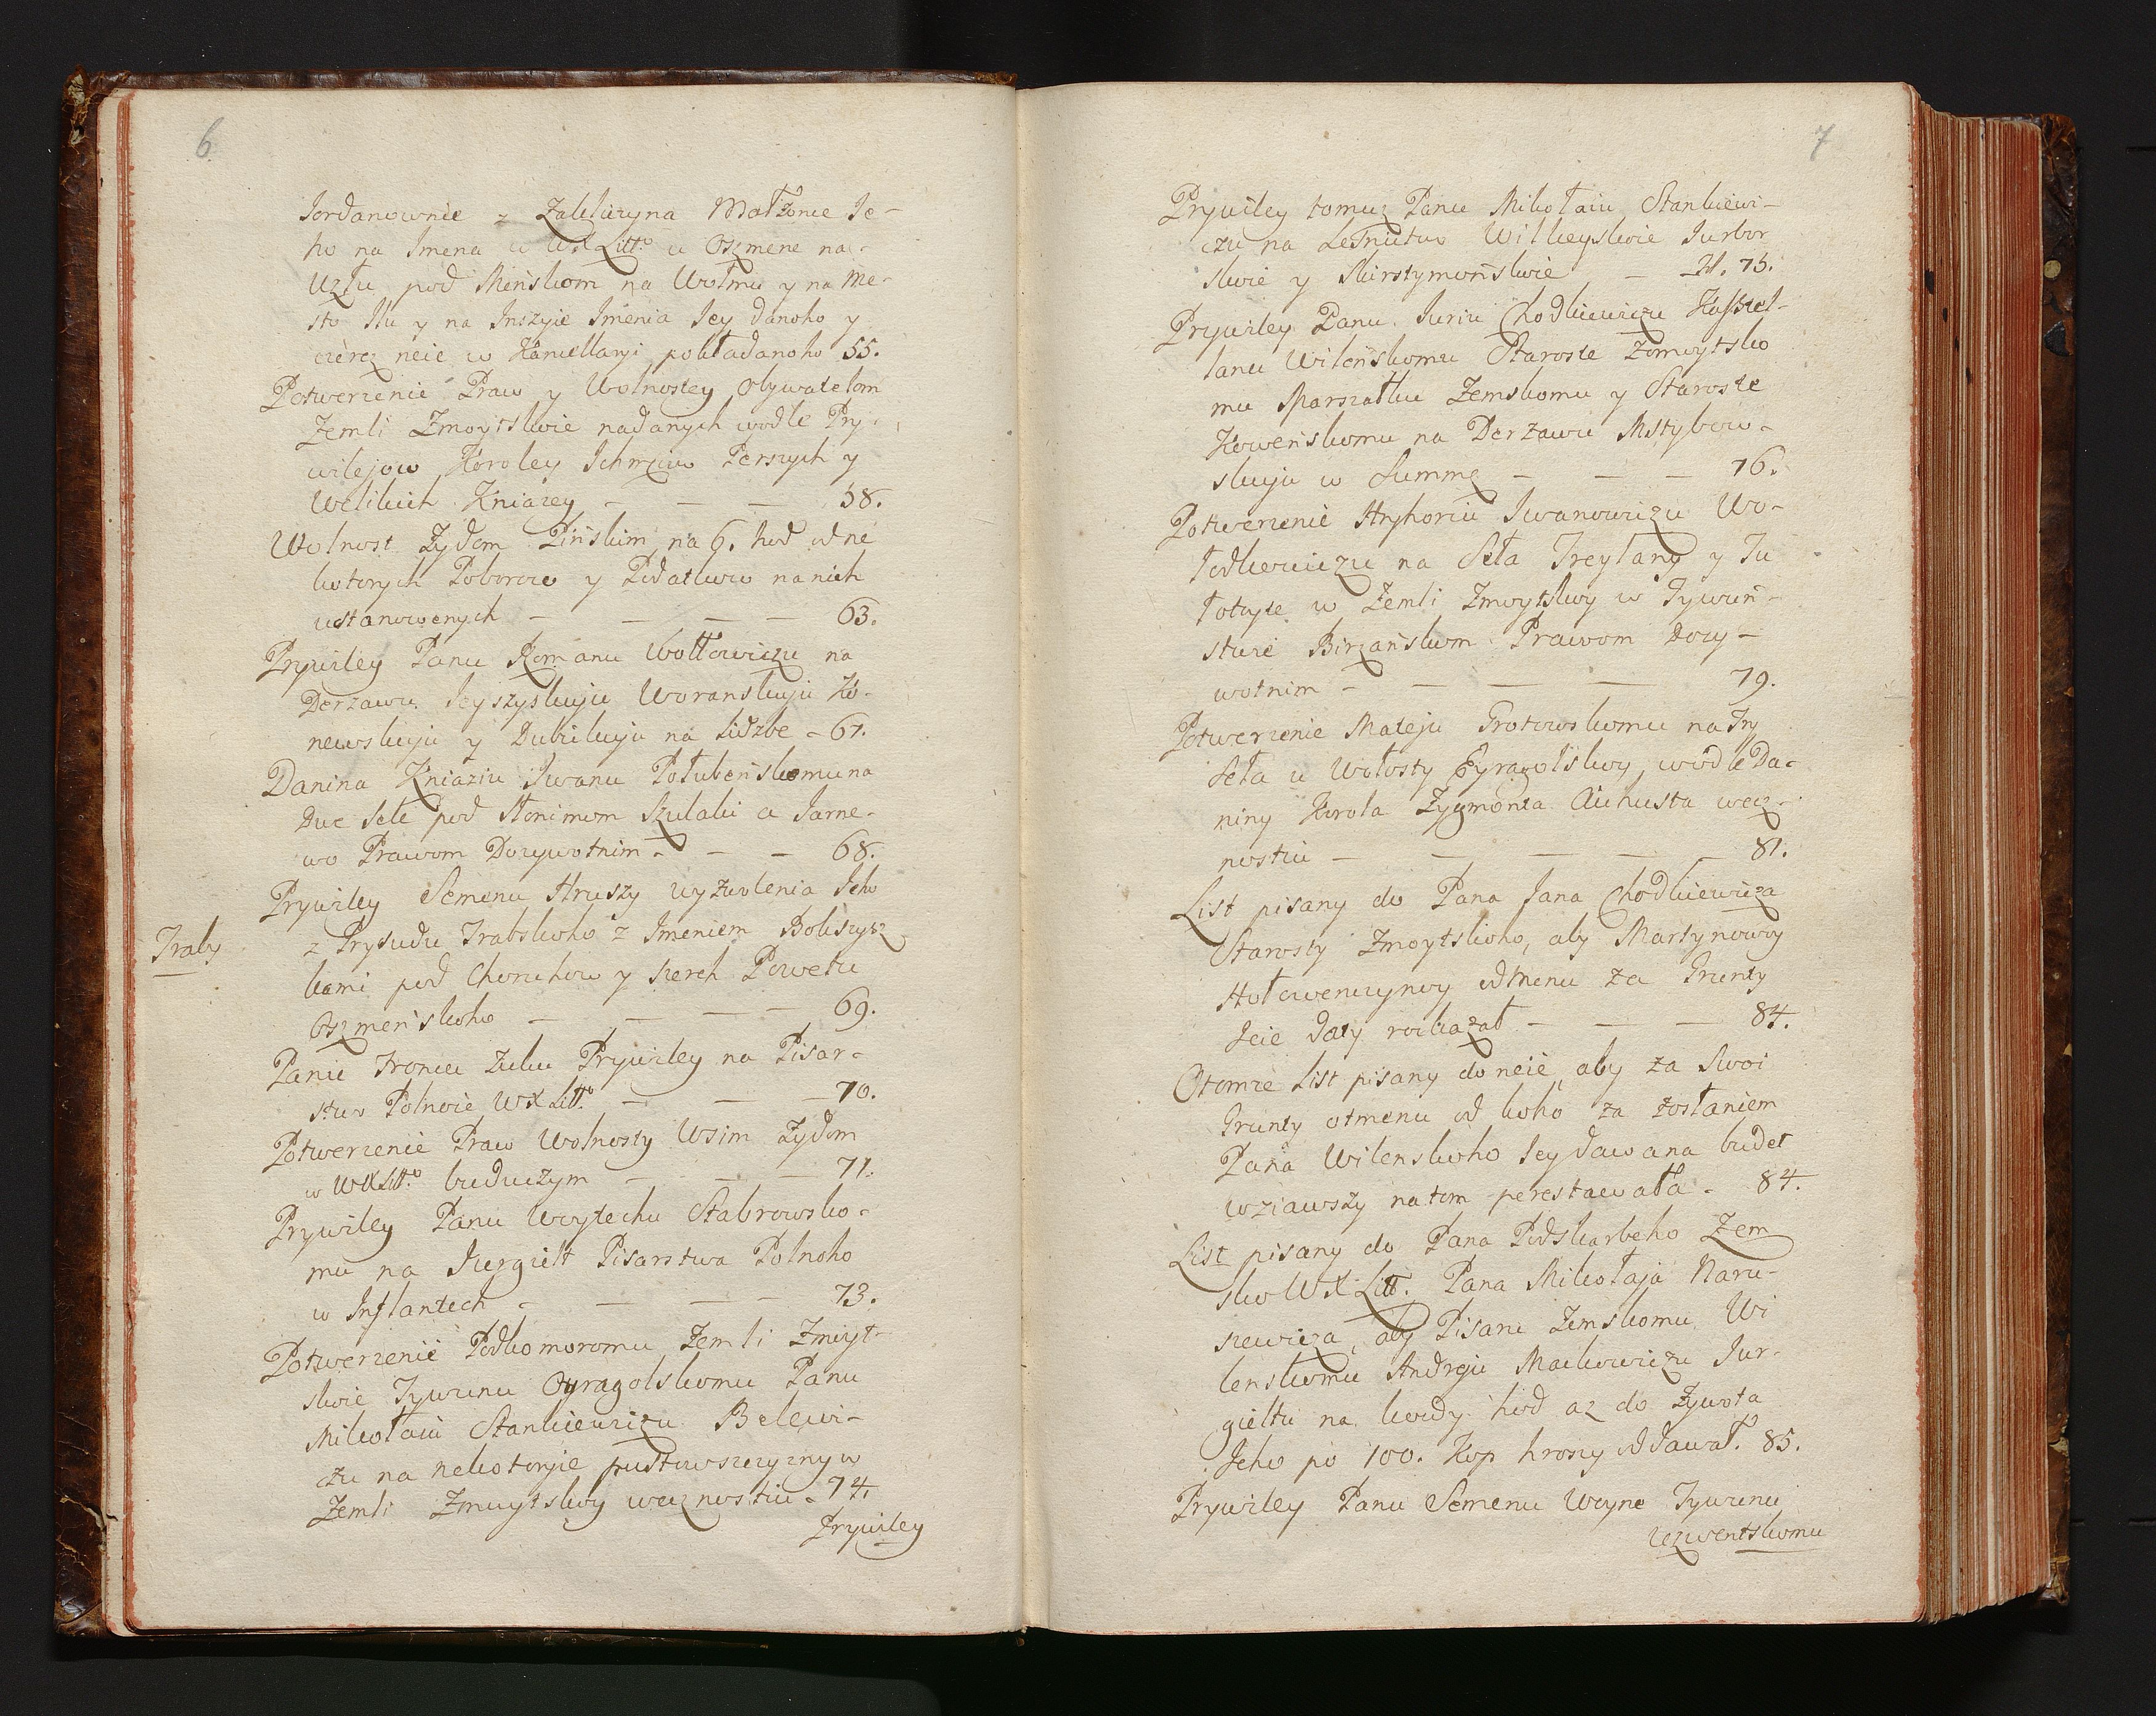 6
Jordanownie z Zakliczyna Małżonce Je-
ho na Imena w WXLitt.o u Oszmene na
Uzłu pod Mińskom na Wołmu y na Me-
sto Ilu y na Inszyie Imenia Jey danoho y
czèrez neie w Kancellaryi pokładanoho 55.
Potwerzenie Praw y Wolnostey Obywatelom
Zemli Zmoytskoie nadanych wodle Pry-
wilejow Koroley Ichmciow Perszych y
Welikich Kniazey — — — 58.
Wolnost Żydom Pińskim na 6. hod od ne
kotorych Poborow y Podatkow na nich
ustanowenych — — — — 63.
Prywiley Panu Romanu Wołłowiczu na
Derzawu Ieyszyskuju Woranskuju Ko-
newskuju y Dubickuju na Lidzbe - 67.
Danina Kniaziu Iwanu Połubeńskomu na
Dwe Sele pod Słonimom Szulaki a Jarne-
wo Prawom Dozywotnim - — — 68.
Prywiley Semenu Hruszy wyzwolenia Jeho
Traby
z Prysudu Trabskoho z Imeniem Bokszysz
kami pod Choruhow y szereh Powetu
Oszmeńskoho — — — — 69.
Panu Froncu Żuku Prywiley na Pisar-
stwo Polnoie WXLitt.o — — — 70.
Potwerzenie Praw Wolnosty Wsim Żydom
w WXLitt.o buduczym — — — 71.
Prywiley Panu Woytechu Stabrowsko-
mu na Jurgielt Pisarstwa Polnoho
w Inflantech - — — — 73.
Potwerzenie Podkomoromu Zemli Zmoyt-
skoie Tywunu Oyragolskomu Panu
Mikołaiu Stankiewiczu Belewi-
czu na nekotoryie pustowszczyzny w
Zemli Zmoytskoy wecznostiu - 74.
Prywiley
7
Prywiley tomuz Panu Mikołaiu Stankiewi-
czu na Leśnictwo Wilkeyskoie Jurbor
skoie y Skirstymońskoie — H. 75.
Prywiley Panu Juriu Chodkiewiczu Kasztel-
lanu Wileńskomu Staroste Zomoytsko
mu Marszałku Zemskomu y Staroste
Kowenskomu na Derzawu Mstybow-
skuju w Summe — — — 76.
Potwerzenie Hryhoriu Iwanowiczu Wo-
łodkewiczu na Seła Treylany y Ju
łotyie w Zemli Zmoytskoy w Tywuń-
stwie Birzańskom Prawom Dozy-
wotnim - — — — 79.
Potwerzenie Mateju Grotowskomu na Try
Seła u Wołosty Eyragolskoy, wodle Da-
niny Korola Zygmonta Auhusta wecz-
nostiu — — — — 81.
List pisany do Pana Jana Chodkiewicza
Starosty Zmoytskoho, aby Martynowoy
Hołowenczynoy odmenu za Grunty
Jeie daty rozkazał — — — 84.
Otomze List pisany do neie, aby za Swoi
Grunty otmenu od koho za zosłaniem
Pana Wilenskoho Jey dawana budet
wziawszy na tom perestawała - 84.
List pisany do Pana Podskarbeho Zem
sko WXLitt. Pana Mikołaja Naru-
szewicza, aby Pisaru Zemskomu Wi
lenskomu Andreju Mackowiczu Jur-
gieltu na kozdy hod az do Żywota
Jeho po 100. Kop hroszy oddawał. 85.
Prywiley Panu Semenu Woyne Tywunu